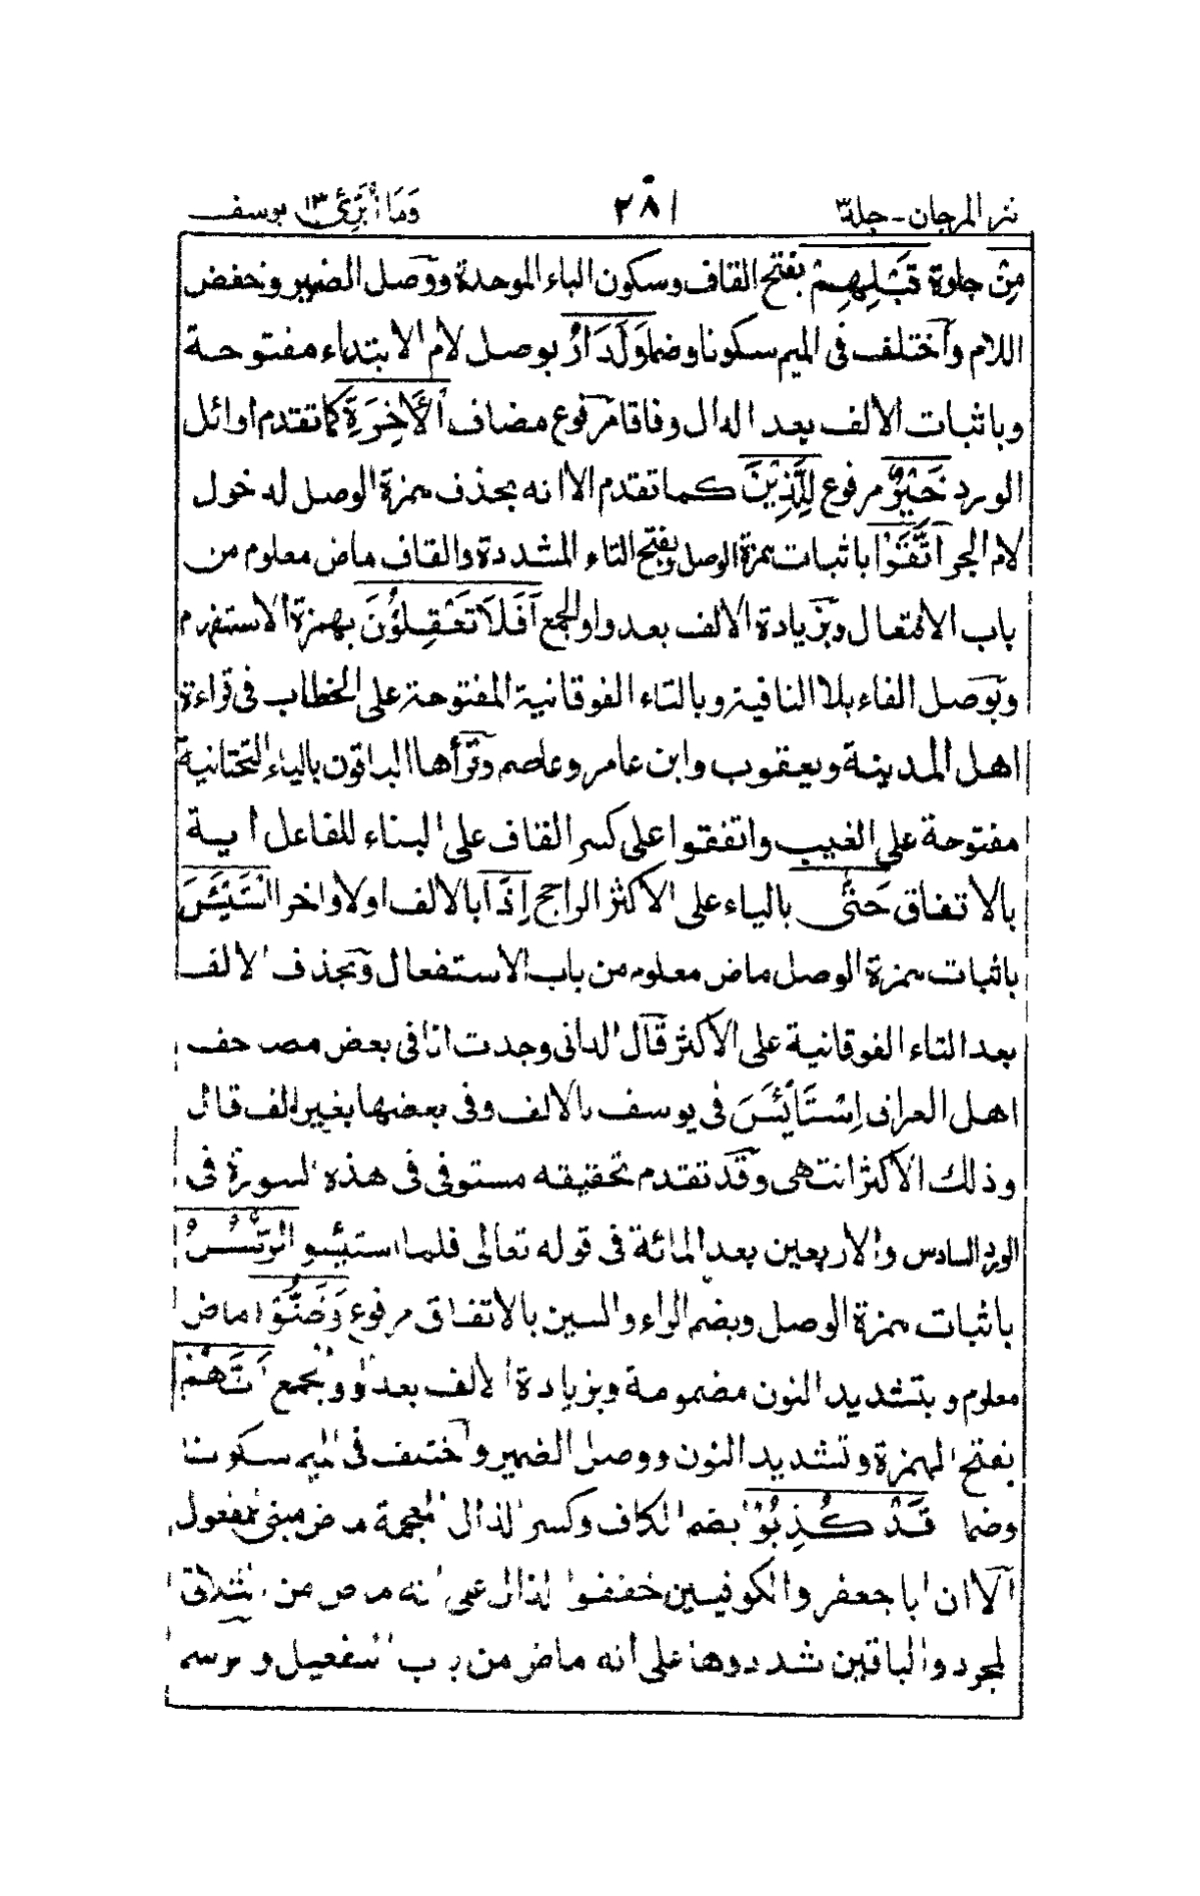 نثر المرجان - جلد ٣ ٢٨١ وَمَا أُبَرِّئُ ١٣ يوسف
مِنْ جارة قَبْلِهِمْ بفتح القاف وسكون الباء الموحدة ووصل الضمير وخفض
اللام واختلف فى الميم سكونا وضما وَلَدَارُ بوصل لام الابتداء مفتوحة
وباثبات الألف بعد الدال وفاقا مرفوع مضاف الْأٰخِرَةِ كما تقدم اوائل
الورد خَيْرٌ مرفوع لِلَّذِيْنَ كما تقدم الا انه بحذف همزة الوصل لدخول
لام الجر اتَّقَوْا باثبات همزة الوصل وبفتح التاء المشددة والقاف ماض معلوم من
باب الافتعال وبزيادة الالف بعد واو الجمع اَفَلَا تَعْقِلُوْنَ بهمزة الاستفهام
وبوصل الفاء بلا النافية وبالتاء الفوقانية المفتوحة على الخطاب فى قراءة
اهل المدينة ويعقوب وابن عامر وعاصم وقرأها الباقون بالياء التحتانية
مفتوحة على الغيب واتفقوا على كسر القاف على البناء للفاعل اية
بالاتفاق حَتّٰى بالياء على الاكثر الراجح اِذَا بالالف اولا واخرا اسْتَيْئَسَ
باثبات همزة الوصل ماض معلوم من باب الاستفعال وبحذف الالف
بعد التاء الفوقانية على الاكثر قال الدانى وجدت انا فى بعض مصاحف
اهل العراق اِسْتَايْئَسَ فى يوسف بالالف وفى بعضها بغير الف قال
وذلك الاكثر انتهى وقد تقدم تحقيقه مستوفى فى هذه السورة فى
الورد السادس والاربعين بعد المائة فى قوله تعالى فلما استيئسو الرُّسُلُ
باثبات همزة الوصل وبضم الراء والسين بالاتفاق مرفوع وَظَنُّوْا ماض
معلوم وبتشديد النون مضمومة وبزيادة الالف بعد واو الجمع اَنَّهُمْ
بفتح الهمزة وتشديد النون ووصل الضمير واختلف فى الميم سكونا
وضما قَدْ كُذِبُوْا بضم الكاف وكسر الذال المعجمة ماض مبنى للمفعول
الا ان ابا جعفر والكوفيين خففوا الذال على انه ماض من الثلاثى
المجرد والباقين شددوها على أنه ماض من باب التفعيل و برسم